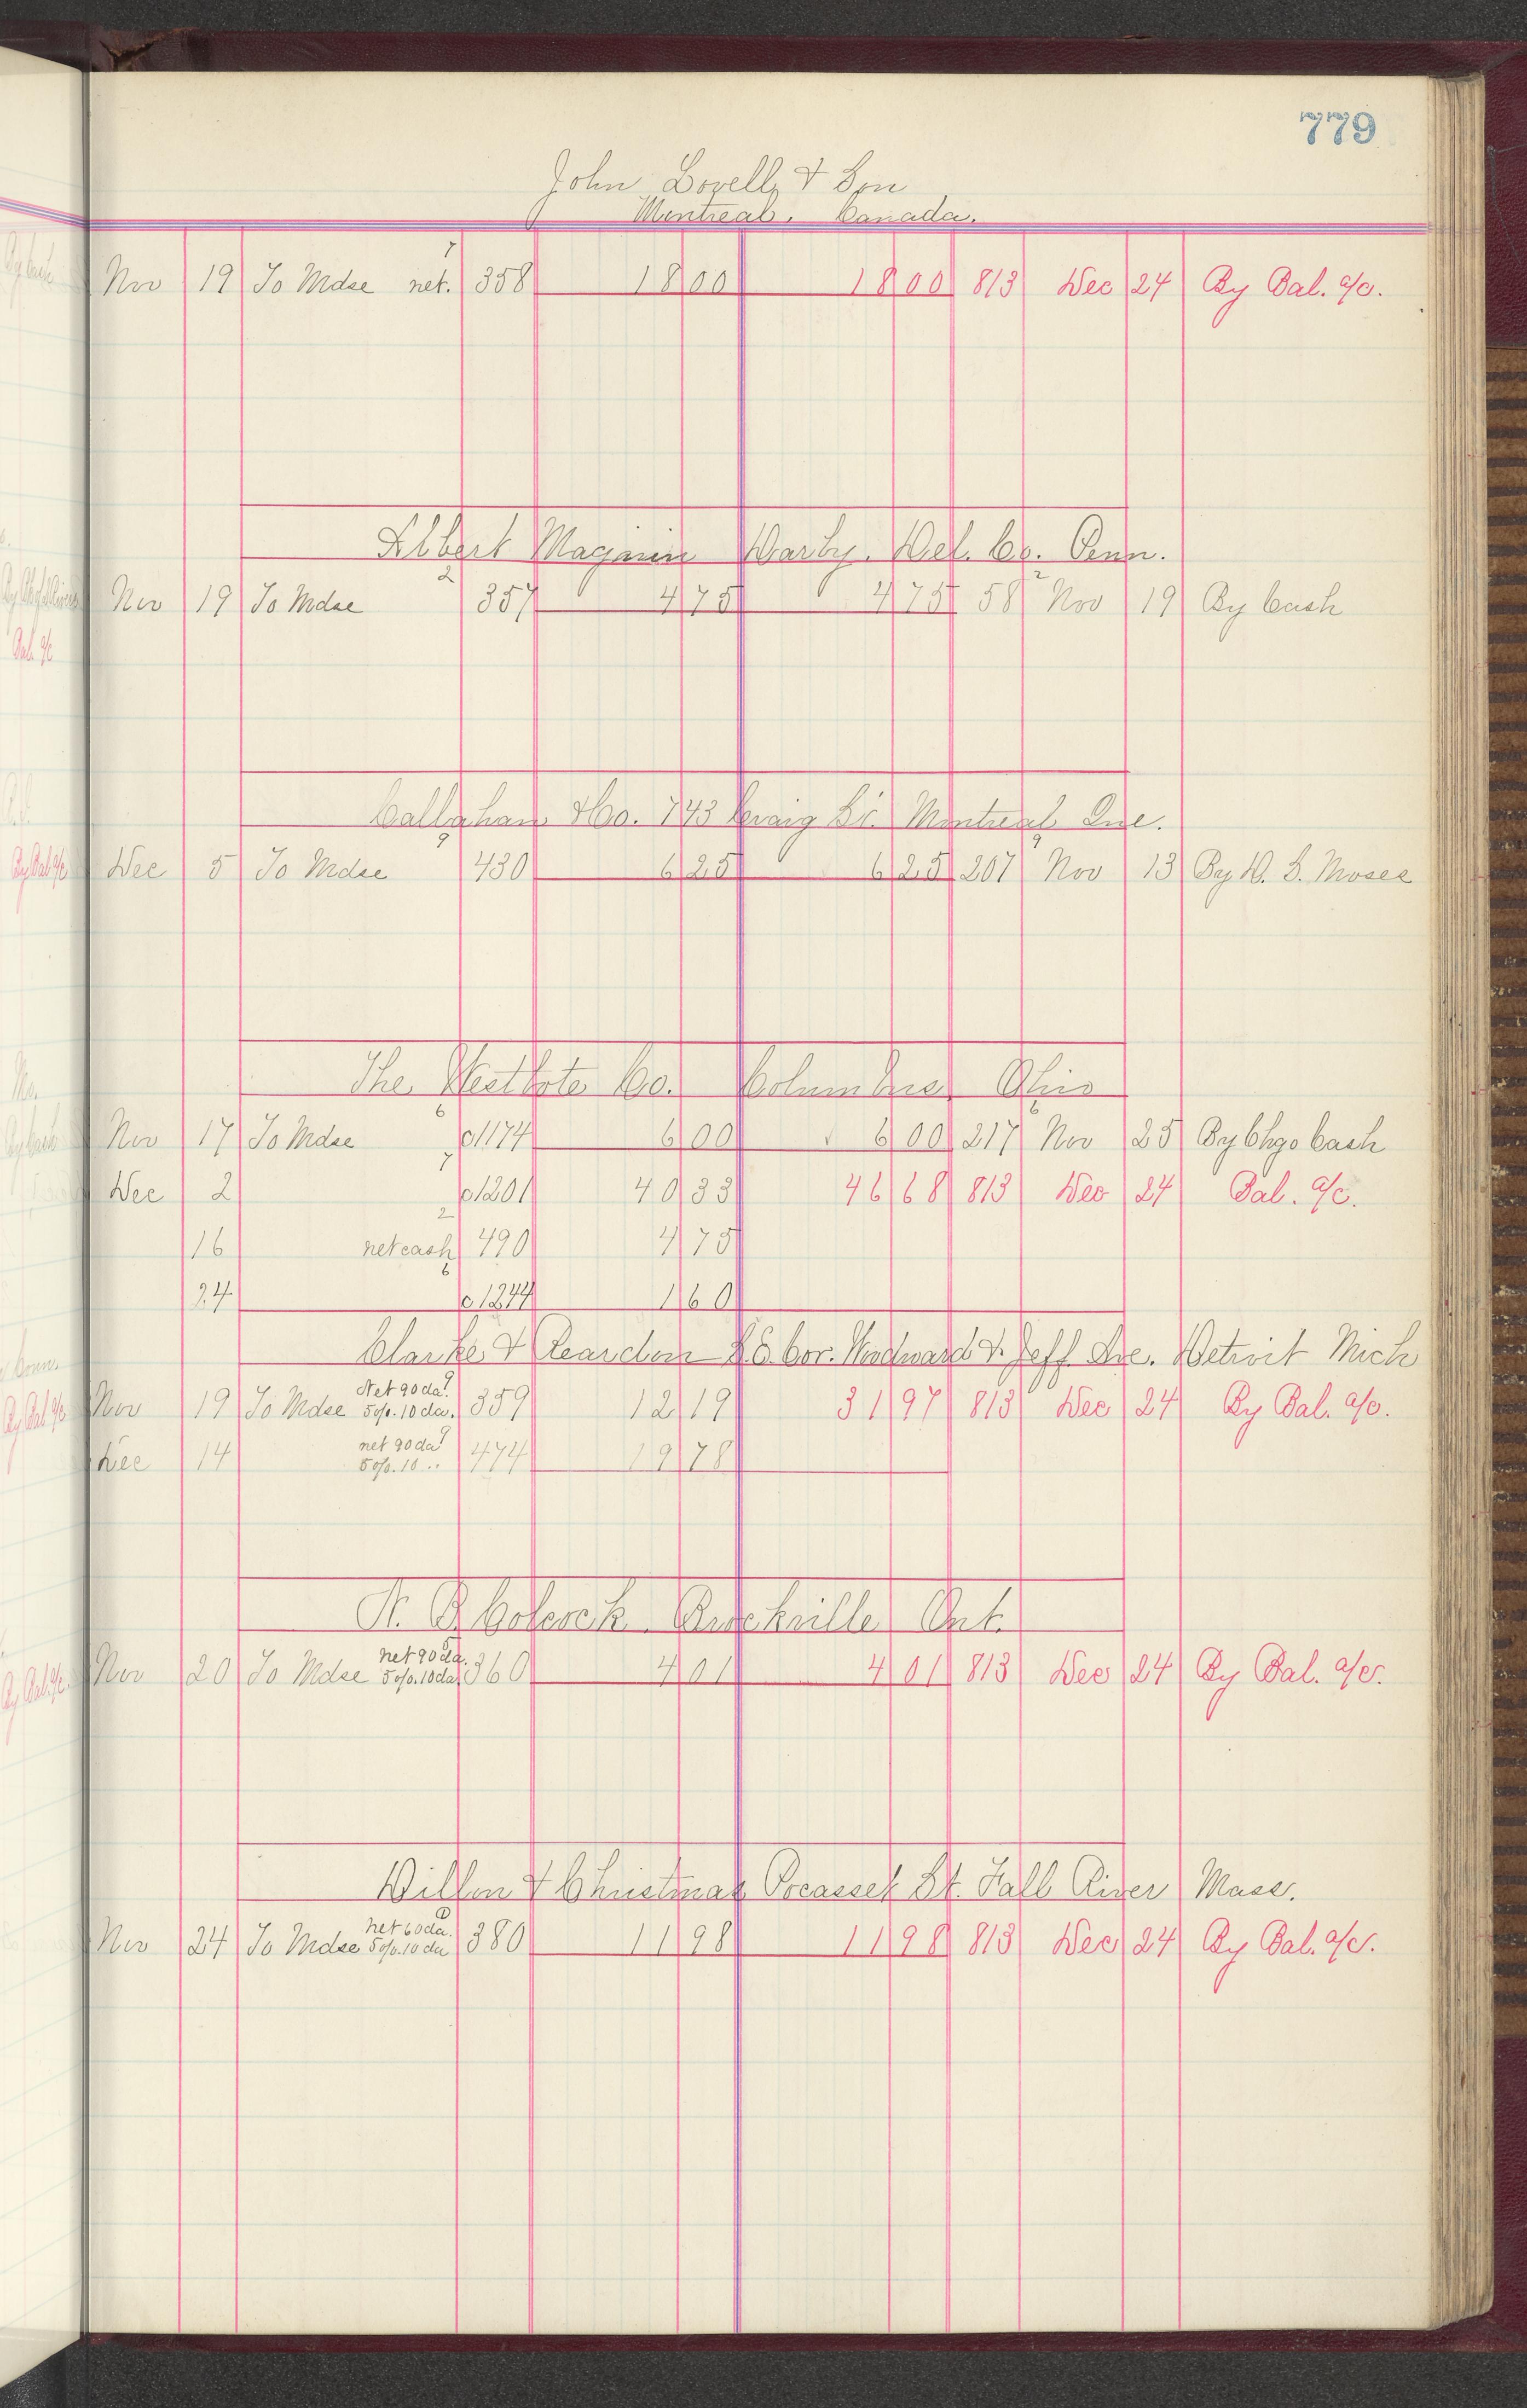 779
John Lovell & Son
Montreal, Canada.
7
Nov 19 To Mdse net. 358 18 00 18 00 813 Dec 24 By Bal. a/c.
Albert Maginin Darby. Del. Co. Penn.
2 2
Nov 19 To Mdse 357 4 75 4 75 58 Nov 19 By Cash
Callahan & Co. 743 Craig St. Montreal Que.
9 9
Dec 5 To Mdse 430 6 25 6 25 207 Nov 13 By D. S. Moses
The Westbote Co. Columbus Ohio
6 6
Nov 17 To Mdse c1174 6 00 √ 6 00 217 Nov 25 By Chgo Cash
7
Dec 2 c1201 40 33 46 68 813 Dec 24 Bal. a/c.
2
16 net cash 490 4 75
6
24 c1244 1 60
Clarke & Reardon S. E. Cor. Woodward & Jeff. Ave. Detroit Mich
Net 90 da. 9
Nov 19 To Mdse 5%. 10 da. 359 12 19 31 97 813 Dec 24 By Bal. a/c.
net 90 da 9
Dec 14 5%. 10 .. 474 19 78
Colcock Brockville Ont.
net 90 da.
Nov 20 To Mdse 5%. 10 da. 360 4 01 4 01 813 Dec 24 By Bal. a/c.
Dillon & Christmas Pocasset St. Fall River Mass.
net 60 da.
Nov 24 To Mdse 5%. 10 da 380 11 98 11 98 813 Dec 24 By Bal. a/c.